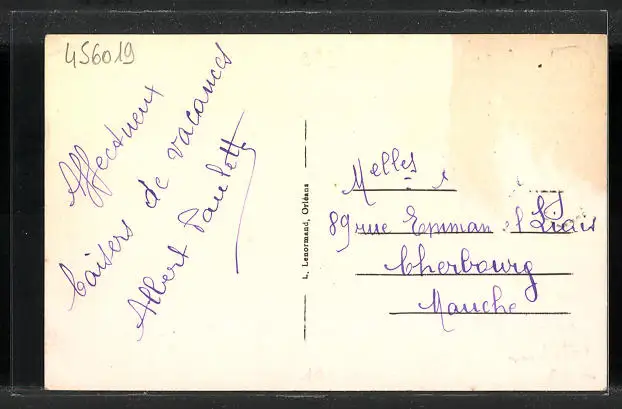 456019
Affectueux
baisers de vacances
Albert Paulette
L. Lenormand, Orléans
Melles
89 rue Emman l Liais
Cherbourg
Manche